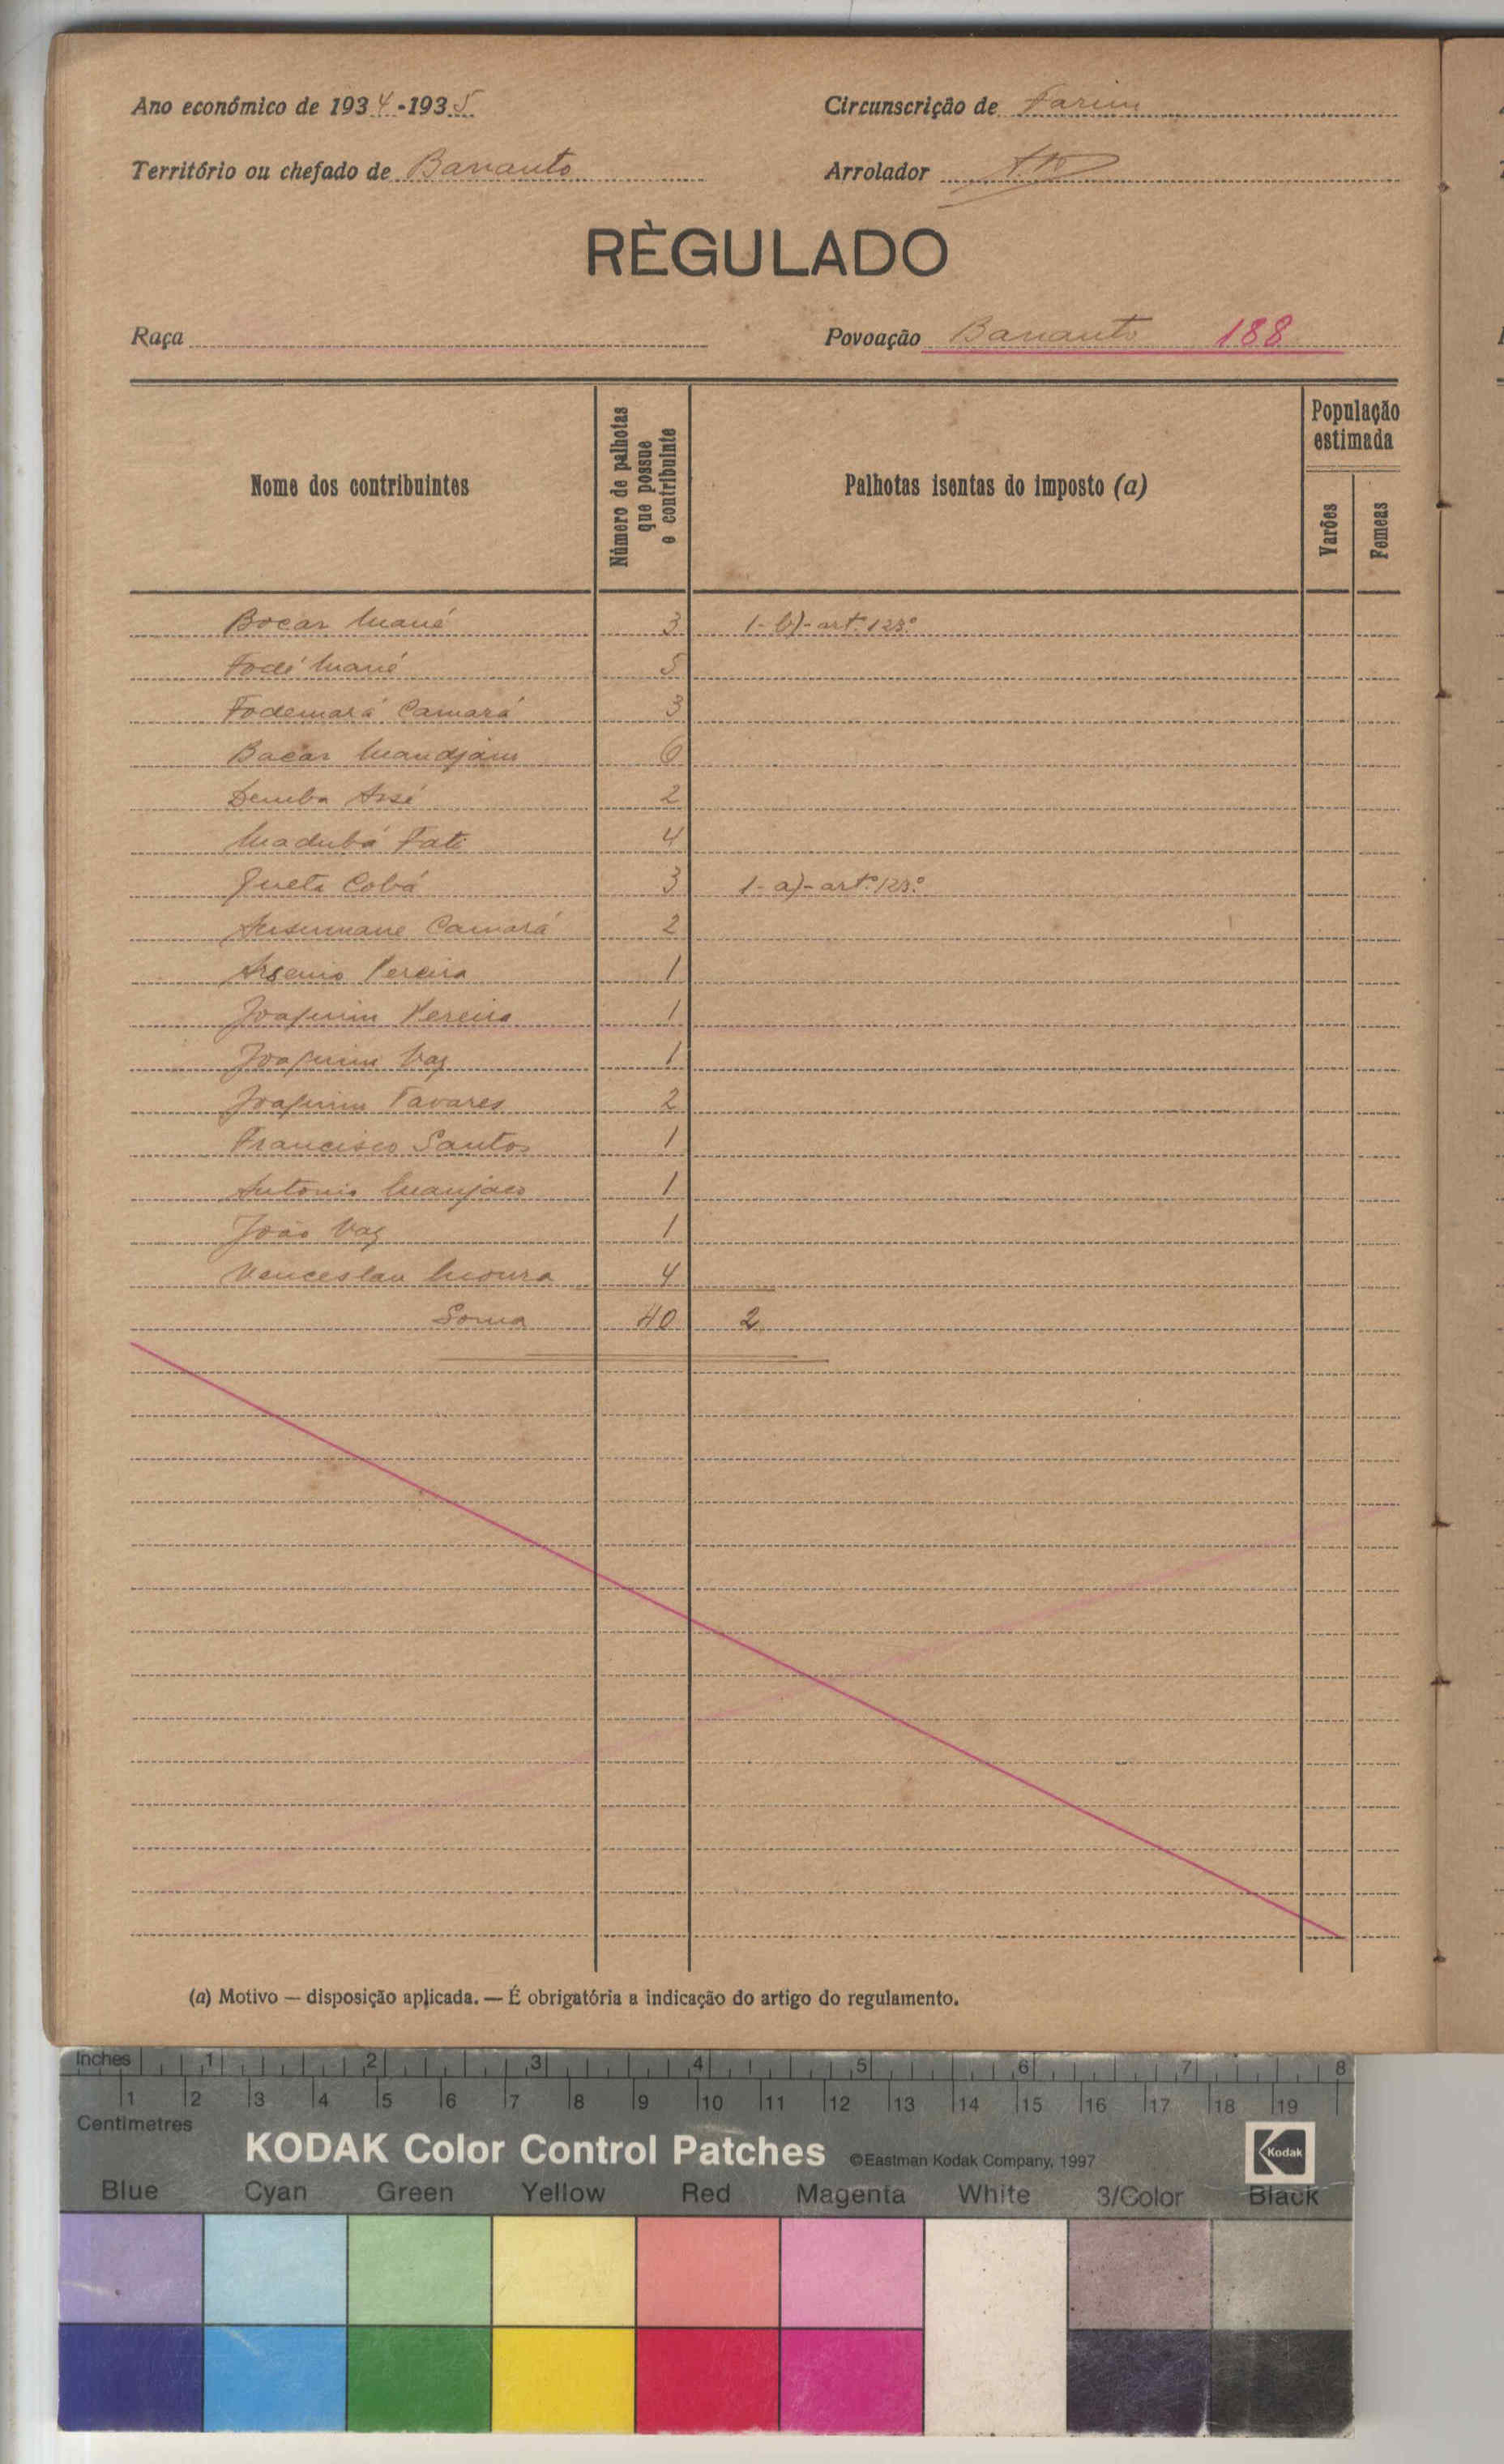 Ano económico de 1934-1935 Circunscrição de Farim
Território ou chefado de Banauto Arrolador
RÈGULADO
Raça Povoação Banauto 188
Nome dos contribuintes Número de palhotas que possue o contribuinte Palhotas isentas do imposto (a) População estimada Varões Femeas
Bocar Mané 3 1-b)-artº.123º
Fodé Mané 5
Fodemará Camará 3
Bacar Mandjam 6
Demba Assé 2
Madubá Fati 4
Queta Cobá 3 1-a)-artº.123º
Ansumane Camará 2
Arsenio Pereira 1
Joaquim Pereira 1
Joaquim Vaz 1
Joaquim Tavares 2
Francisco Santos 1
Antonio Manjaco 1
João Vaz 1
Venceslau Moura 4
Soma 40 2
(a) Motivo — disposição aplicada. — É obrigatória a indicação do artigo do regulamento.
Inches 1 2 3 4 5 6 7 8
1 2 3 4 5 6 7 8 9 10 11 12 13 14 15 16 17 18 19
Centimetres
KODAK Color Control Patches ©Eastman Kodak Company, 1997 Kodak
Blue Cyan Green Yellow Red Magenta White 3/Color Black